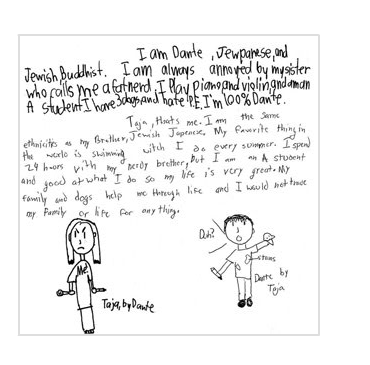 I am Dante, Jewpanese, and
Jewish Buddhist. I am always annoyed by my sister
who calls me a fat nerd. I Play piano and violin, and am an
A student I have 3 dogs, and hate P.E. I'm 100% Dante.
Taja, thats me. I am the same
ethnicities as my Brother, Jewish Japenese. My favorite thing in
the world is swimming witch I do every summer. I spend
24 hours with my nerdy brother, But I am an A student
and good at what I do so my life is very great. My
family and dogs help me through life and I would not trade
my family or life for any thing.
Duh?
Me
stains
Dante by
Taja
Taja, by Dante